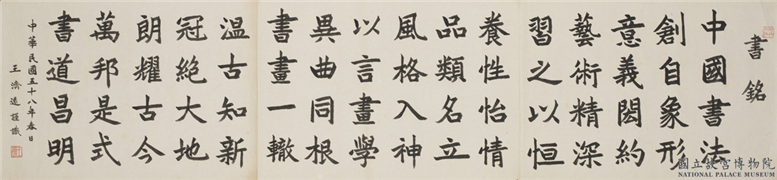 書銘
中國書法
創自象形
意義閎約
藝術精深
習之以恒
養性怡情
品類名立
風格入神
以言畫學
異曲同根
書畫一轍
溫古知新
冠絕大地
朗耀古今
萬邦是式
書道昌明
中華民國五十八年春日
王濟遠謹識
國立故宮博物院
NATIONAL PALACE MUSEUM